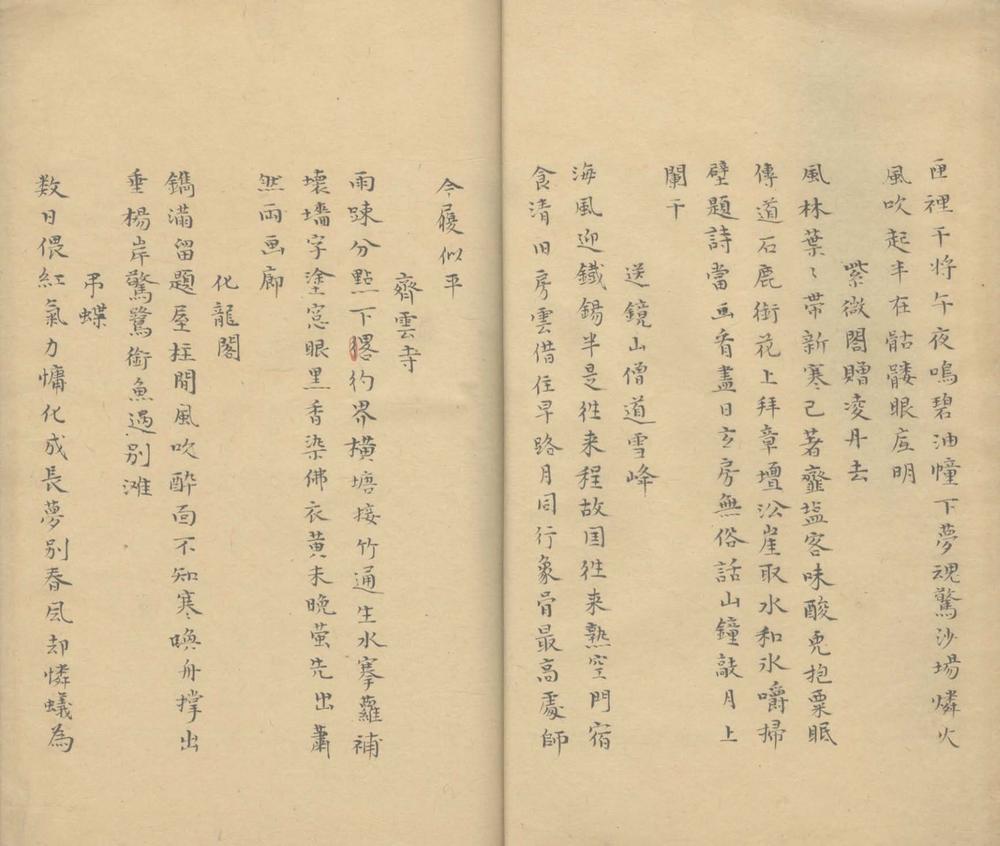 匣裡干将午夜鳴碧油幢下夢魂驚沙場燐火
風吹起半在骷髏眼底明
紫微閣贈凌丹去
風林葉〻帯新寒已著虀塩客味酸兎抱粟眠
傳道石鹿銜花上拜章壇㳂崖取水和氷嚼掃
壁題詩當画看盡日玄房無俗話山鐘敲月上
闌干
送鏡山僧道雪峰
海風迎鐵錫半是徃来程故囯徃来熟空門宿
食清旧房雲借住早路月同行象骨最高處師
今履似平
齊雲寺
雨踈分點下畧彴界横塘接竹通生水搴蘿補
壊墻字塗窓眼黒香染佛衣黄未晩萤先出蕭
然両画廊
化龍閣
鐫滿留題屋柱間風吹酔面不知寒喚舟撑出
垂楊岸驚鷺銜魚過别滩
弔蝶
数日偎紅氣力慵化成長夢别春风却憐蟻為